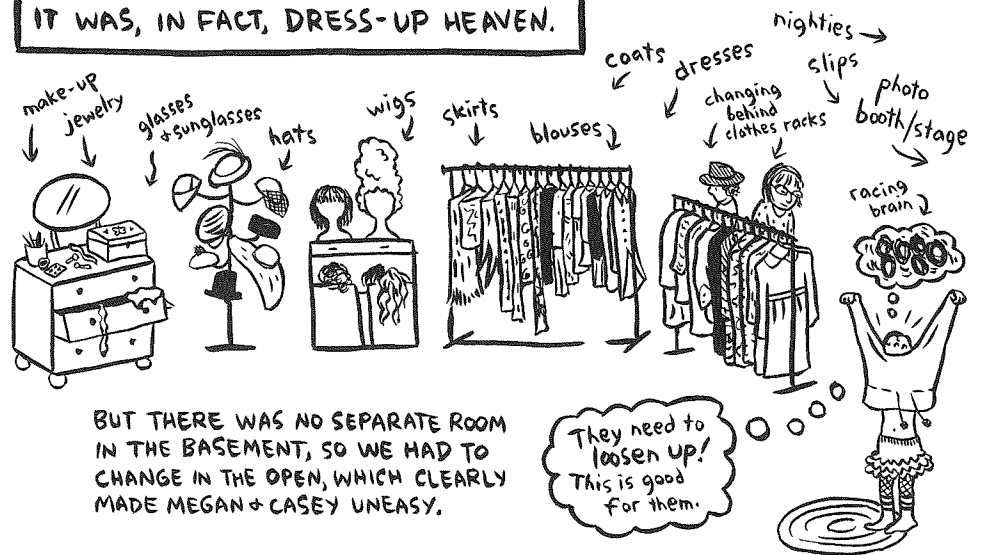 IT WAS, IN FACT, DRESS-UP HEAVEN.
make-up
jewelry
glasses
& sunglasses
hats
wigs
skirts
blouses
coats
dresses
changing
behind
clothes racks
nighties
slips
photo
booth/stage
racing
brain
BUT THERE WAS NO SEPARATE ROOM
IN THE BASEMENT, SO WE HAD TO
CHANGE IN THE OPEN, WHICH CLEARLY
MADE MEGAN & CASEY UNEASY.
They need to
loosen up!
This is good
for them.